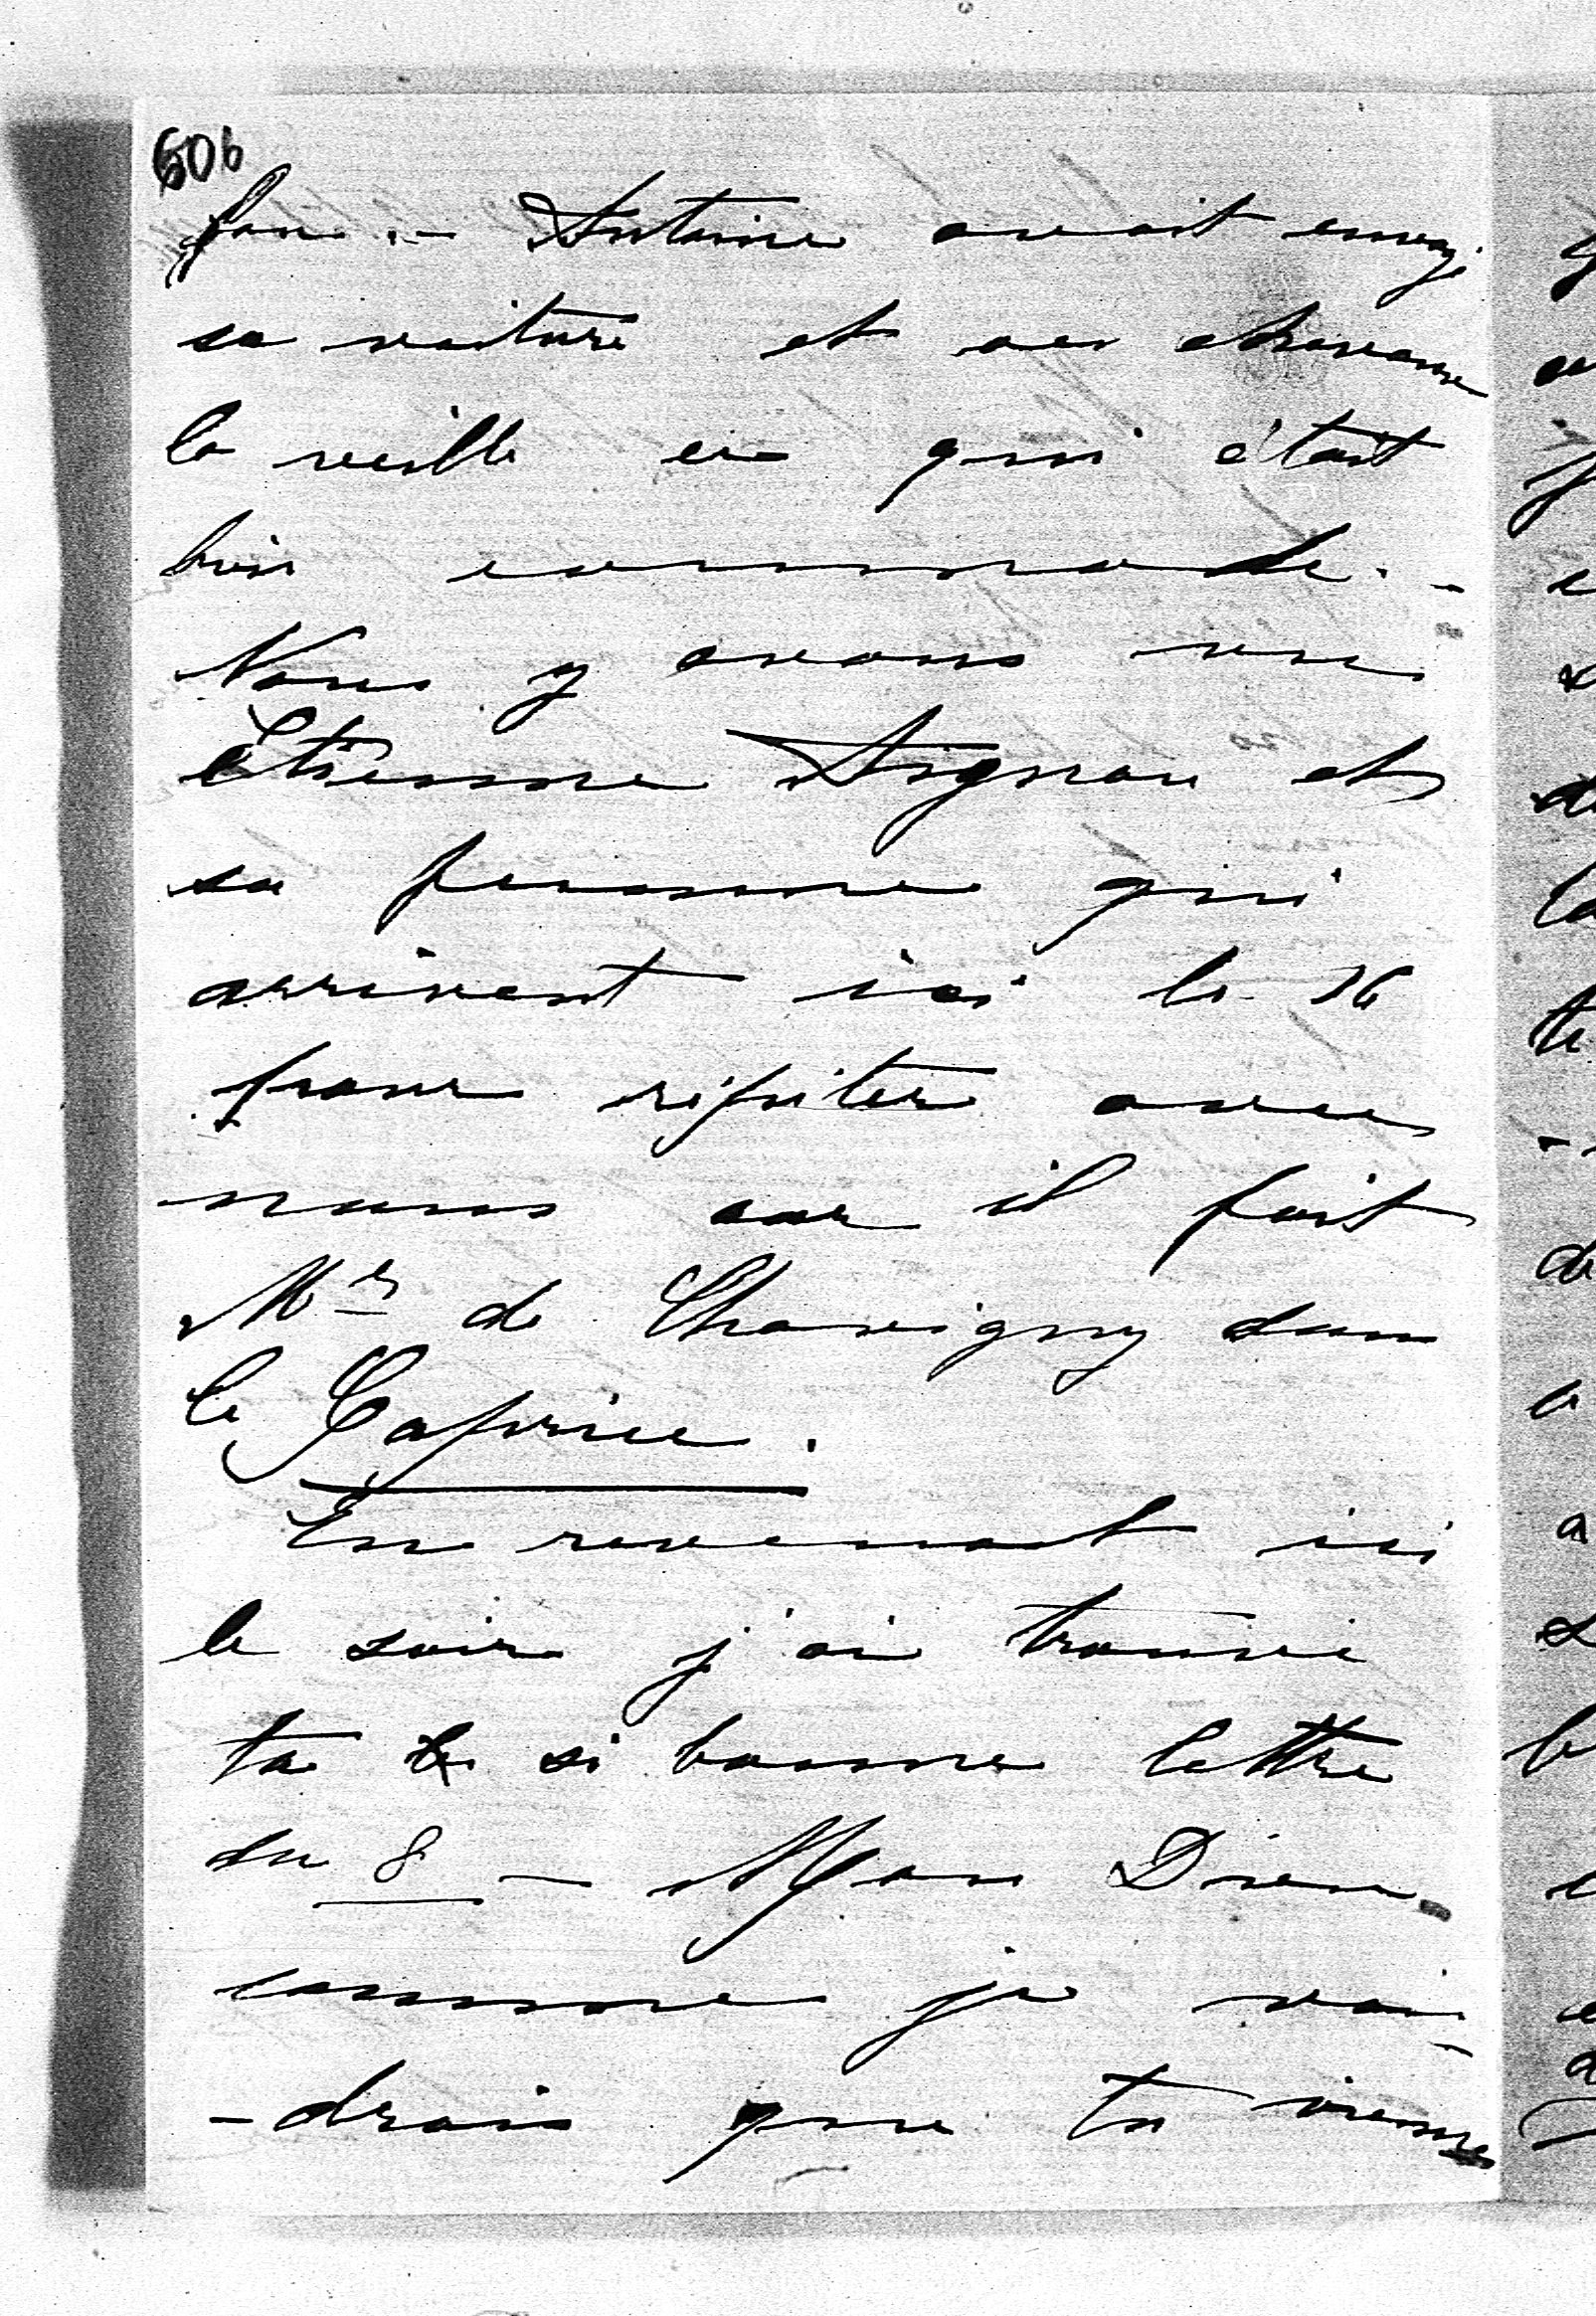 606
fou. – Antoine avait envoyé
sa voiture et ses chevaux
la veille ce qui était
bien commode. –
Nous y avons vu
Etienne Aignan et
sa femme qui
arrivent ici le 16
pour répéter avec
nous car il fait
Mr de Chavigny dans
le Caprice.
En revenant ici
le soir j'ai trouvé
ta si bonne lettre
du 8 – Mon Dieu
comme je vou-
-drais que tu viennes